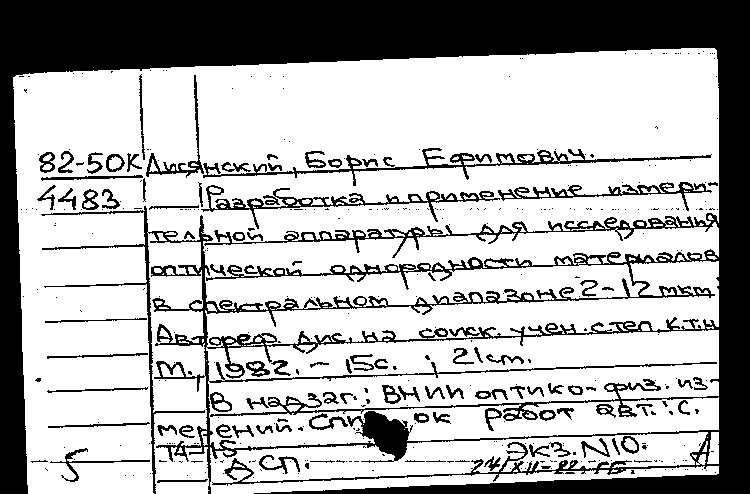 82-50К Лисянский, Борис Ефимович.
4483 Разработка и применение измери-
тельной аппаратуры для исследования
оптической однородности материалов
в спектральном диапазоне 2-12 мкм:
Автореф. дис. на соиск. учен. степ. к.т.н
М., 1982. - 15с. ; 21см.
В надзаг.: ВНИИ оптико-физ. из-
мерений. Список работ авт.: с.
14-15
ДСП. Экз. N10. Д
5 24/XII-82. ГБ.